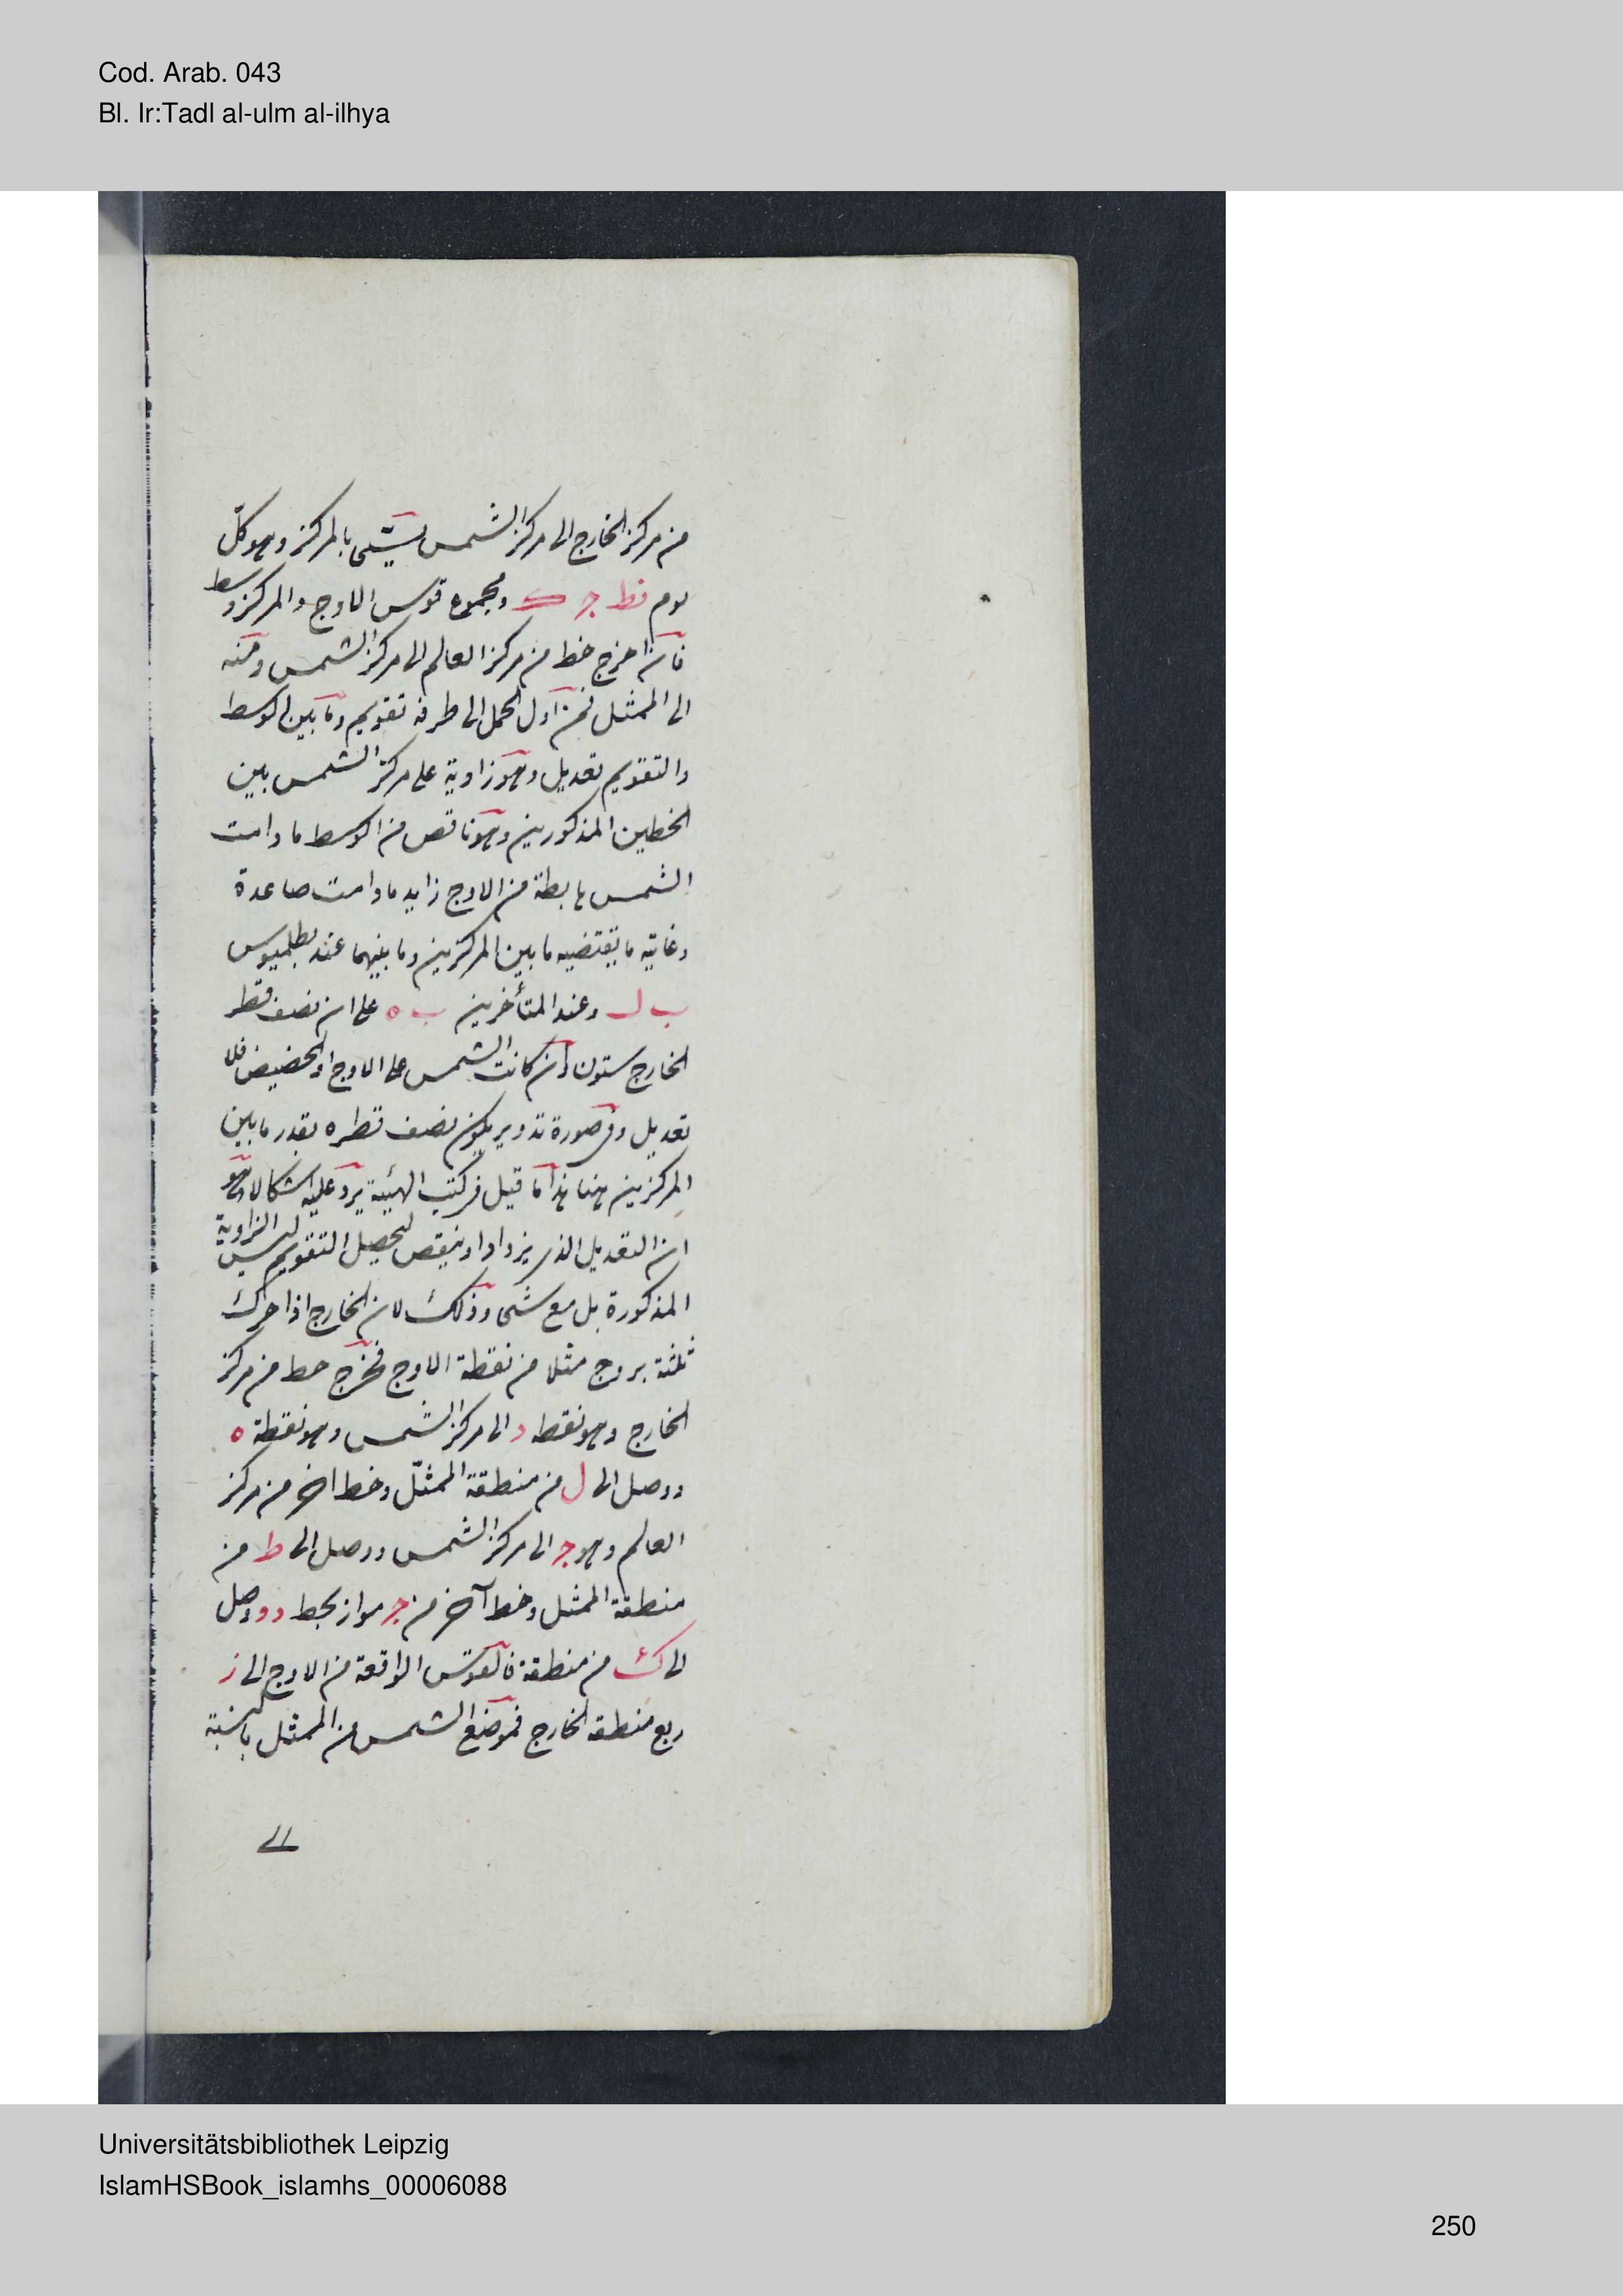 Cod. Arab. 043
Bl. Ir:Tadl al-ulm al-ilhya
من مركز الخارج الى مركز الشمس يسمى بالمركز وهو كل
يوم نط ج ك ومجموع قوس الاوج والمركز وسط
فان اخرج خط من مركز العالم الى مركز الشمس ومنه
الى الممثل فمن اول الحمل الى طرفه تقويم وما بين الوسط
والتقويم تعديل وهو زاوية على مركز الشمس بين
الخطين المذكورين وهو ناقص من الوسط ما دامت
الشمس هابطة من الاوج زايد ما دامت صاعدة
وغايته ما يقتضيه ما بين المركزين وما بينهما عند بطلميوس
ب ل وعند المتأخرين ب ه على ان نصف قطر
الخارج ستون وان كانت الشمس على الاوج او الحضيض فلا
تعديل وفى صورة تدوير يكون نصف قطره بقدر ما بين
المركزين هنا هذا ما قيل فى كتب الهيئة يرد عليه اشكالا وهو
ان التعديل الذى يزداد او ينقص لتحصيل التقويم ليس الزاوية
المذكورة بل مع شىء وذلك لان الخارج اذا حرك
ثلثة بروج مثلا من نقطة الاوج فخرج خط من مركز
الخارج وهو نقطة د الى مركز الشمس وهو نقطة ه
ووصل الى ل من منطقة الممثل وخط اخر من مركز
العالم وهو ج الى مركز الشمس ووصل الى ط من
منطقة الممثل وخط آخر من ج مواز بخط د ووصل
الى ك من منطقة فالقوس الواقعة من الاوج الى ز
ربع منطقة الخارج فموضع الشمس من الممثل بالنسبة
الى
Universitätsbibliothek Leipzig
IslamHSBook_islamhs_00006088
250